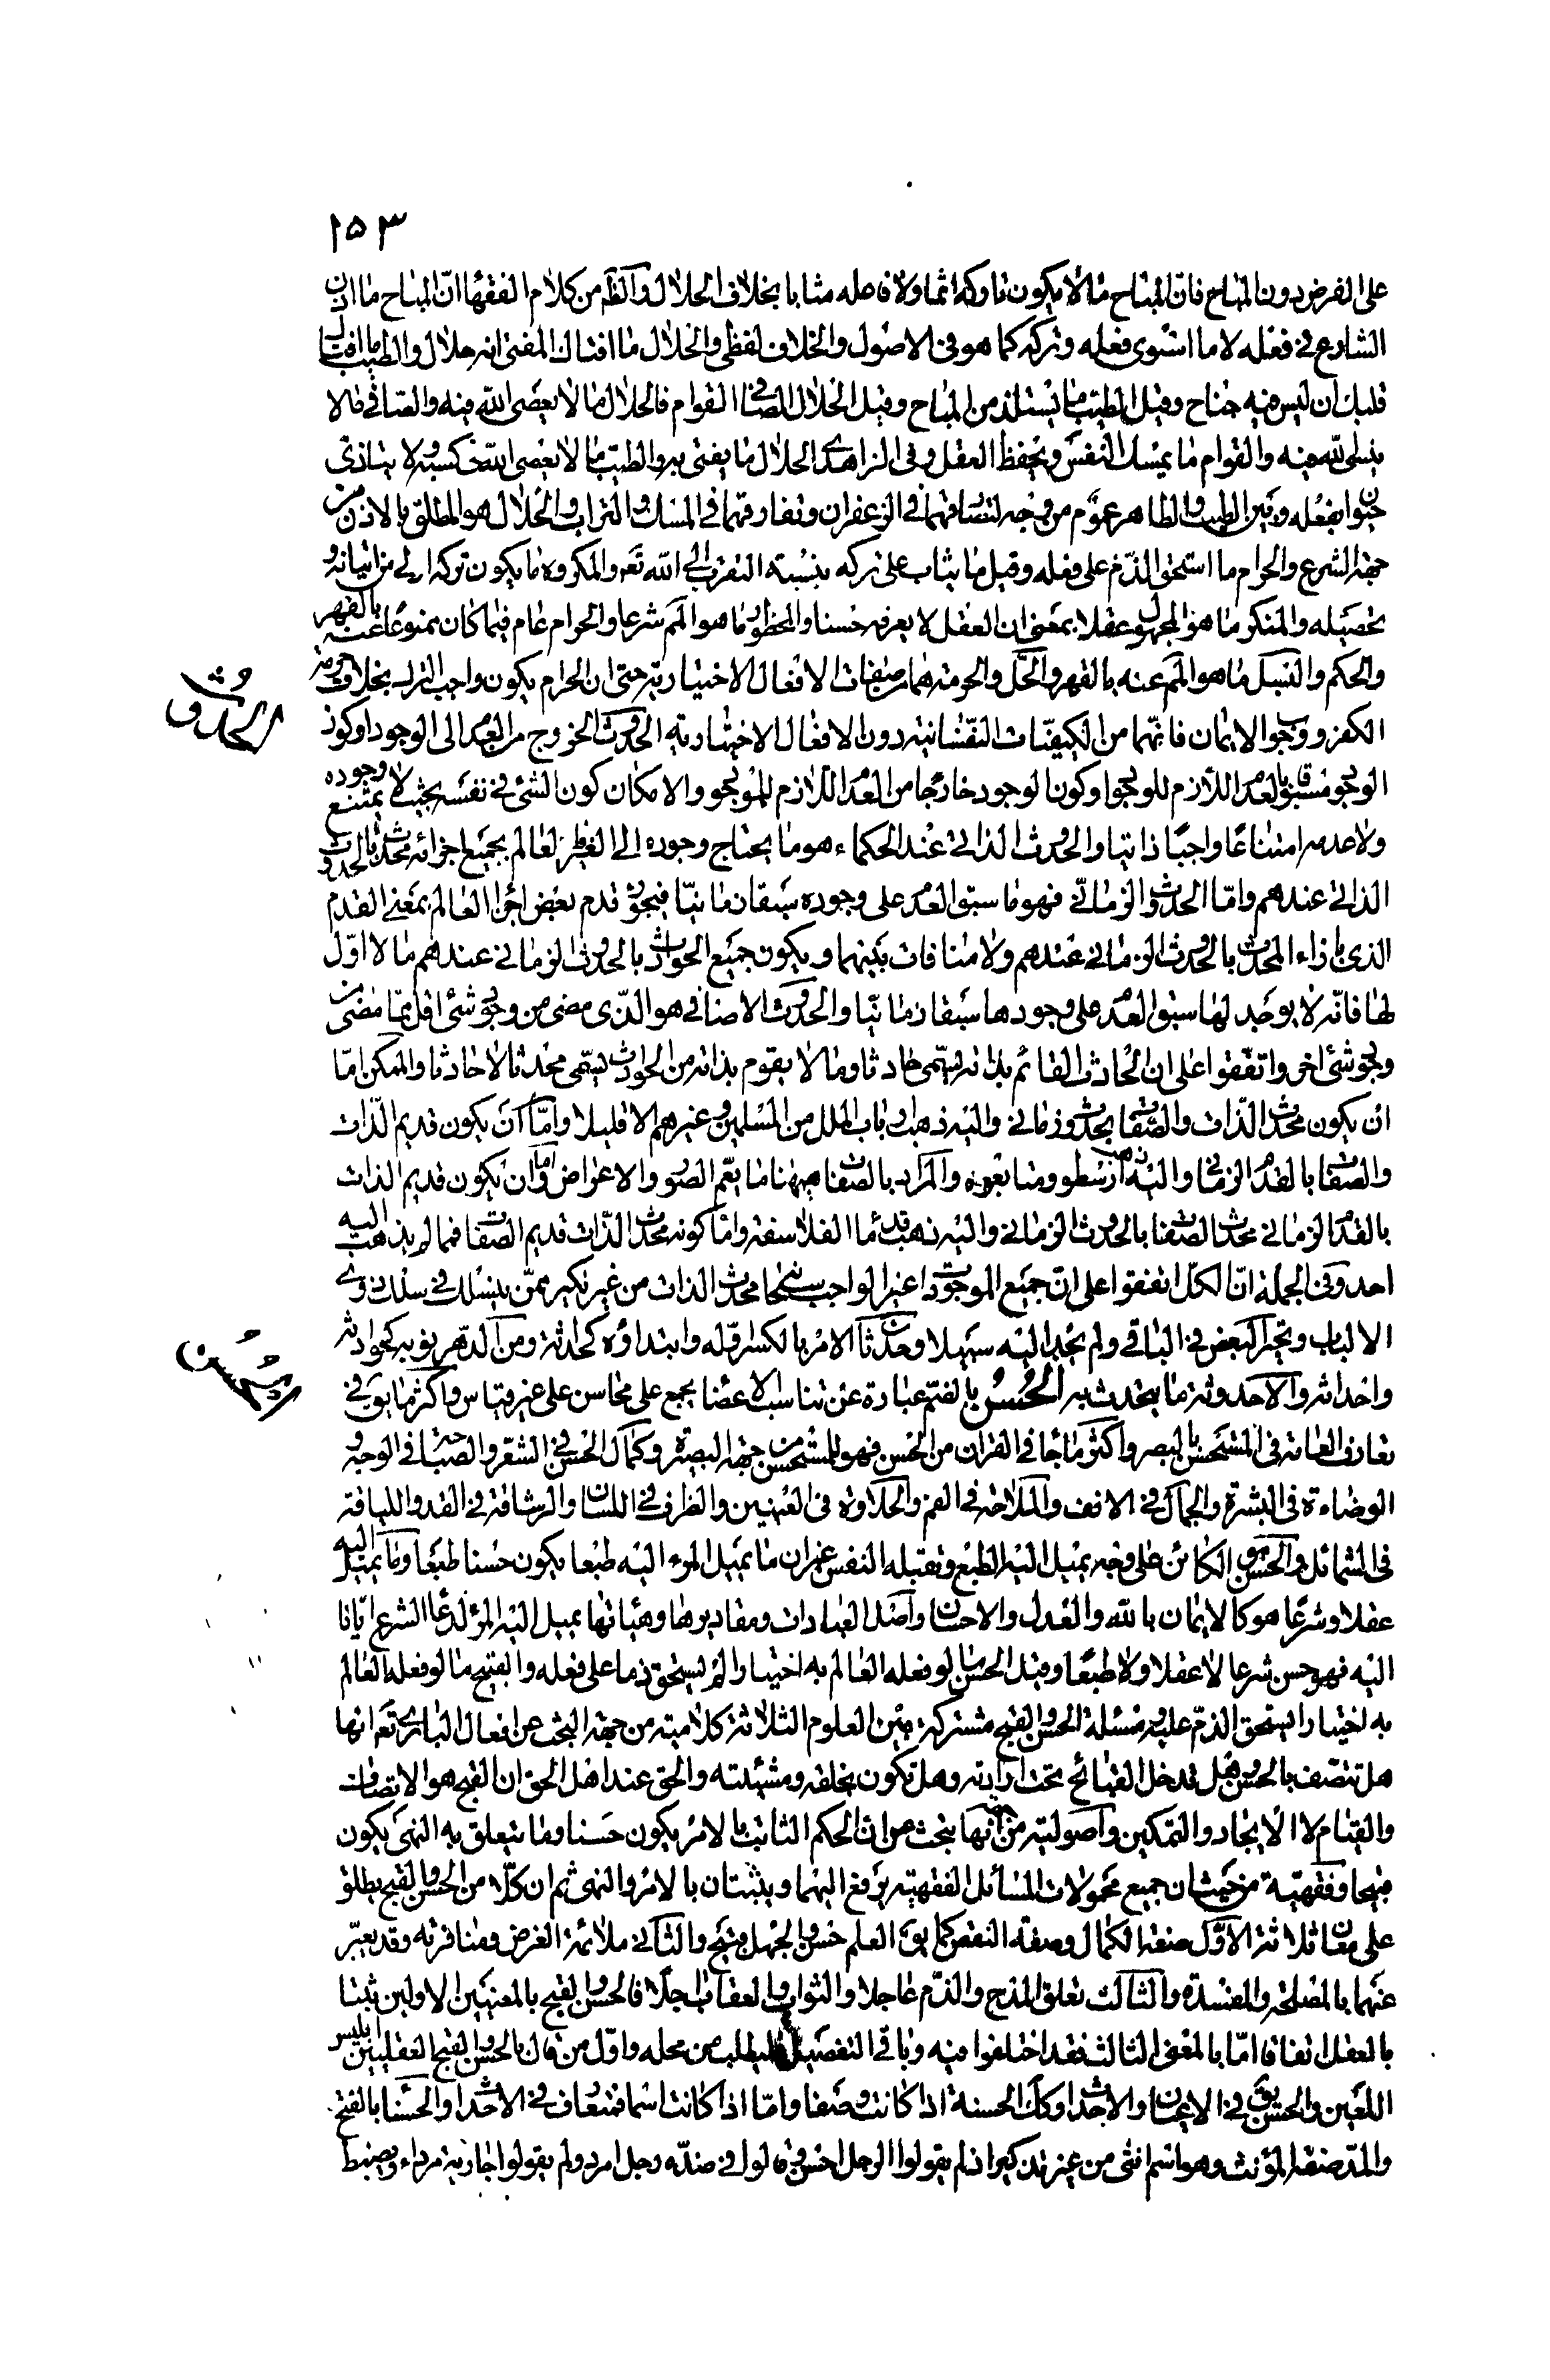 ١٥٣
على الفرض دون المباح فان المباح ما لا يكون تاركه اثما ولا فاعله مثابا بخلاف الحلال والظم من كلام الفقها ان المباح ما اذن
الشارع فى فعله لا ما استوى فعله وتركه كما هو فى الاصول والخلاف لفظى والحلال ما افتاك المفتى انه حلال والطيب ما افتاك
قلبك ان ليس فيه جناح وقيل الطيب ما يستلذ من المباح وقيل الحلال الصافى القوام فالحلال ما لا يعصى الله فيه والصافى ما لا
ينسى الله فيه والقوام ما يمسك النفس ويحفظ العقل وفى الزاهدى الحلال ما يفتى به والطيب ما لا يعصى الله فى كسبه ولا يتاذى
حيوان بفعله وبين الطيب والطاهر عموم من وجه لتصادقهما فى الزعفران وتفارقهما فى المسك والتراب والحلال هو المطلق بالاذن من
جهة الشرع والحرام ما استحق الذم على فعله وقيل ما يثاب على تركه بنسبته التقرب الى الله تع والمكروه ما يكون تركه اولى من اتيانه و
تحصيله والمنكر ما هو المجهول عقلا بمعنى ان العقل لا يعرفه حسنا والمحظور ما هو المم شرعا والحرام عام فيما كان ممنوعا عنه بالقهر
والحكم والبسل ما هو المم عنه بالقهر والحل والحرمة هما من صفات الافعال الاختيارية حتى ان الحرام يكون واجب الترك بخلاف حرمة
الحدوث
الكفر ووجوب الايمان فانهما من الكيفيات النفسانية دون الافعال الاختيارية الحدوث الخروج من العدم الى الوجود او كون
الوجود مسبوقا بالعدم اللازم للوجود او كون الوجود خارجا من العدم اللازم للموجود والامكان كون الشئ فى نفسه بحيث لا يمتنع وجوده
ولا عدمه امتناعا واجبا ذاتيا والحدوث الذاتى عند الحكماء هو ما يحتاج وجوده الى الغير فالعالم بجميع اجزائه محدث بالحدوث
الذاتى عندهم واما الحدوث الزمانى فهو ما سبق العدم على وجوده سبقا زمانيا فيجوز قدم بعض اجزا العالم بمعنى القدم
الذى بازاء المحدث بالحدوث الزمانى عندهم ولا منافات بينهما ويكون جميع الحوادث بالحدوث الزمانى عندهم ما لا اول
لها فانه لا يوجد لها سبق العدم على وجودها سبقا زمانيا والحدوث الاضافى هو الذى مضى من وجود شئ اقل مما مضى من
وجود شئ اخر واتفقوا على ان الحادث القائم بذاته يسمى حادثا وما لا يقوم بذاته من الحوادث يسمى محدثا لا حادثا والممكن اما
ان يكون محدث الذات والصفات بحدوث زمانى واليه ذهب ارباب الملل من المسلمين وغيرهم الا قليلا واما ان يكون قديم الذات
والصفات بالقدم الزمانى واليه ذهب ارسطو ومتابعوه والمراد بالصفات ههنا ما يعم الصور والاعراض واما ان يكون قديم الذات
بالقدم الزمانى محدث الصفات بالحدوث الزمانى واليه ذهب قدما الفلاسفة واما كونه محدث الذات قديم الصفات فمما لم يذهب اليه
احد وفى الجملة ان الكل اتفقوا على ان جميع الموجودات غير الواجب سبحانه محدث الذات من غير نكير ممن ينسلك فى سلك ذوى
الالباب وتحير البعض فى الباقى ولم يجد اليه سبيلا وحدثان الامر بالكسر اوله وابتداؤه كحداثته ومن الدهر نوبه كحوادثه
الحسن
واحداثه والاحدوثة ما يتحدث به الحُسن بالضم عبارة عن تناسب الاعضا يجمع على محاسن على غير قياس واكثر ما يق فى
تعارف العامة فى المستحسن بالبصر واكثر ما جا فى القران من الحسن فهو للمستحسن من جهة البصيرة وكمال الحسن فى الشعر والصباحة فى الوجه و
الوضاءة فى البشرة والجمال فى الانف والملاحة فى الفم والحلاوة فى العينين والظرف فى اللسان والرشاقة فى القد واللباقة
فى الشمائل والحسن هو الكائن على وجه يميل اليه الطبع وتقبله النفس غير ان ما يميل المرء اليه طبعا يكون حسنا طبعا وما يميل اليه
عقلا وشرعا هو كالايمان بالله والعدل والاحسان واصل العبادات ومقاديرها وهيئاتها يميل اليه المرء لدعا الشرع ايانا
اليه فهو حسن شرعا لا عقلا ولا طبعا وقيل الحسن ما لو فعله العالم به اختيارا لم يستحق ذما على فعله والقبيح ما لو فعله العالم
به اختيارا يستحق الذم عليه ومسئلة الحسن والقبح مشتركة بين العلوم الثلاثة كلامية من جهة البحث عن افعال البارى تع انها
هل تتصف بالحسن وهل تدخل القبائح تحت ارادته وهل تكون بخلقه ومشيئته والحق عند اهل الحق ان القبح هو الاتصاف
والقيام لا الايجاد والتمكين واصولية من انها يبحث عن ان الحكم الثابت بالامر يكون حسنا وما يتعلق به النهى يكون
قبيحا وفقهية من حيث ان جميع محمولات المسائل الفقهية يرفع اليهما ويثبتان بالامر والنهى ثم ان كلا من الحسن والقبح يطلق
على معان ثلاثة الاول صفة الكمال وصفة النقص كما يق العلم حسن والجهل قبيح والثانى ملائمة الغرض ومنافرته وقد يعبر
عنهما بالمصلحة والمفسدة والثالث تعلق المدح والذم عاجلا والثواب والعقاب اجلا فالحسن والقبح بالمعنيين الاولين ثبتا
بالعقل اتفاقا اما بالمعنى الثالث فقد اختلفوا فيه وباقى التفصيل فليطلب من محله واول من قال بالحسن والقبح العقليين ابليس
اللعين والحسن يق فى الاعيان والاحداث وكك الحسنة اذا كانت وصفا واما اذا كانت اسما فمتعارف فى الاحداث والحسنا بالفتح
والمد صفة المؤنث وهو اسم انثى من غير تذكير اذ لم يقولوا الرجل احسن وقالوا فى ضده رجل امرد ولم يقولوا جارية مرداء ويضبط